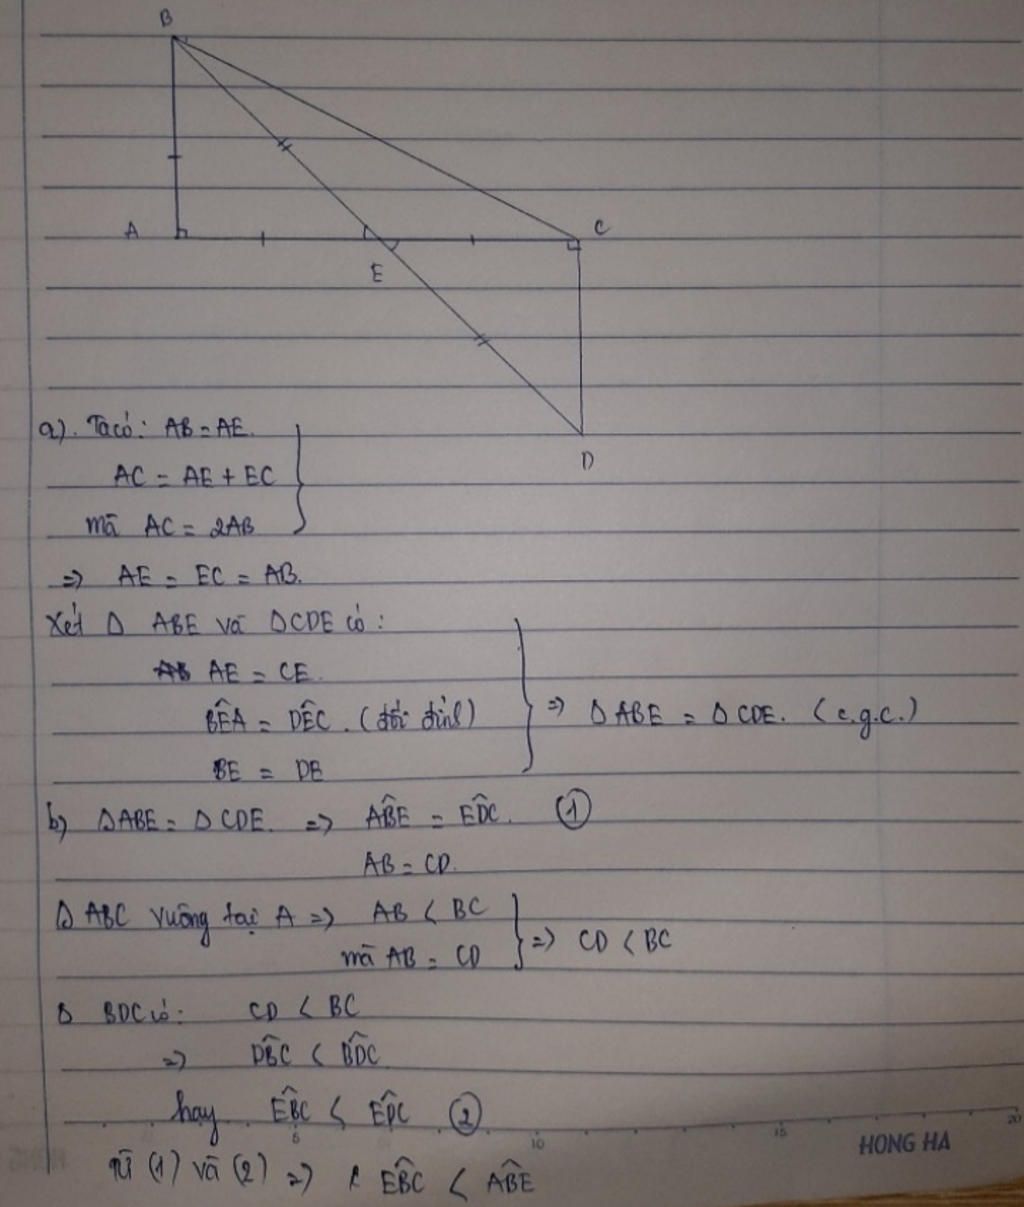 B
A
C
E
D
a). Ta có: AB = AE.
AC = AE + EC
mà AC = 2AB
=> AE = EC = AB.
Xét Δ ABE và ΔCDE có:
AE = CE.
BÊA = DÊC. (đối đỉnh)
BE = DE
=> Δ ABE = Δ CDE. (c.g.c.)
b) ΔABE = Δ CDE. => AB̂E = ED̂C. ①
AB = CD.
Δ ABC vuông tại A => AB < BC
mà AB = CD
=> CD < BC
Δ BDC có: CD < BC
=> DB̂C < BD̂C
hay EB̂C < ED̂C ②
từ (1) và (2) => EB̂C < AB̂E
5 10 15 20
HONG HA